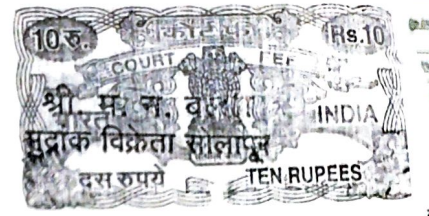 10 रु. कोर्ट फी Rs.10
COURT FEE
श्री. म. न.
भारत INDIA
मुद्रांक विक्रेता सोलापूर
दस रुपये TEN RUPEES